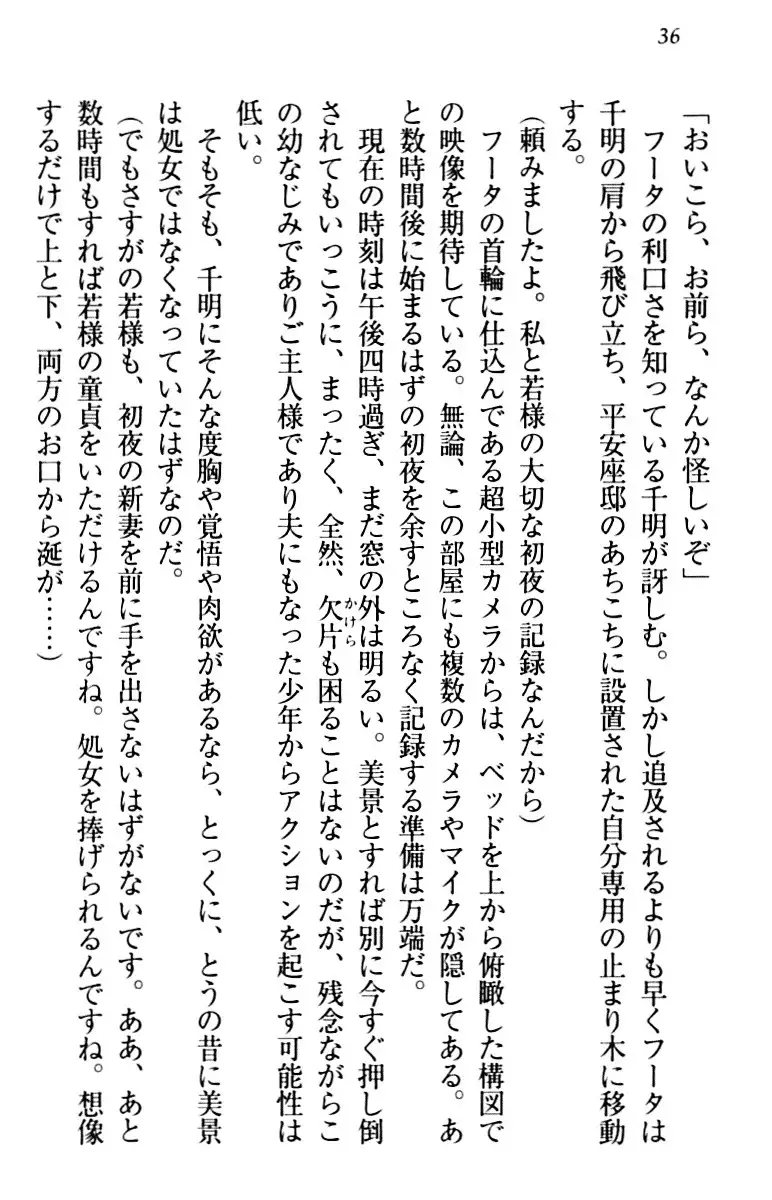 36
「おいこら、お前ら、なんか怪しいぞ」
フータの利口さを知っている千明が訝しむ。しかし追及されるよりも早くフータは
千明の肩から飛び立ち、平安座邸のあちこちに設置された自分専用の止まり木に移動
する。
(頼みましたよ。私と若様の大切な初夜の記録なんだから)
フータの首輪に仕込んである超小型カメラからは、ベッドを上から俯瞰した構図で
の映像を期待している。無論、この部屋にも複数のカメラやマイクが隠してある。あ
と数時間後に始まるはずの初夜を余すところなく記録する準備は万端だ。
現在の時刻は午後四時過ぎ、まだ窓の外は明るい。美景とすれば別に今すぐ押し倒
されてもいっこうに、まったく、全然、欠片かけらも困ることはないのだが、残念ながらこ
の幼なじみでありご主人様であり夫にもなった少年からアクションを起こす可能性は
低い。
そもそも、千明にそんな度胸や覚悟や肉欲があるなら、とっくに、とうの昔に美景
は処女ではなくなっていたはずなのだ。
(でもさすがの若様も、初夜の新妻を前に手を出さないはずがないです。ああ、あと
数時間もすれば若様の童貞をいただけるんですね。処女を捧げられるんですね。想像
するだけで上と下、両方のお口から涎が……)